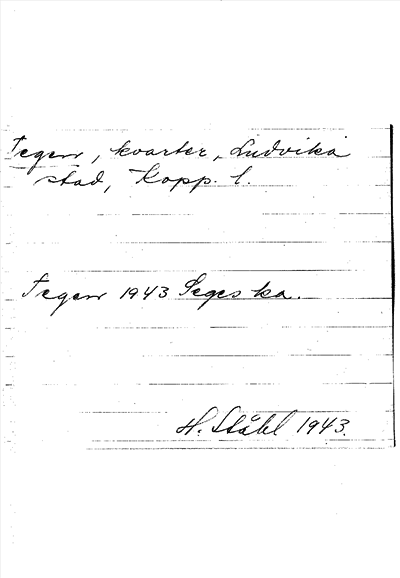 Tegen, kvarter, Ludvika
stad, Kopp. l.
Tegen 1943 ka.
H. Ståhl 1943.